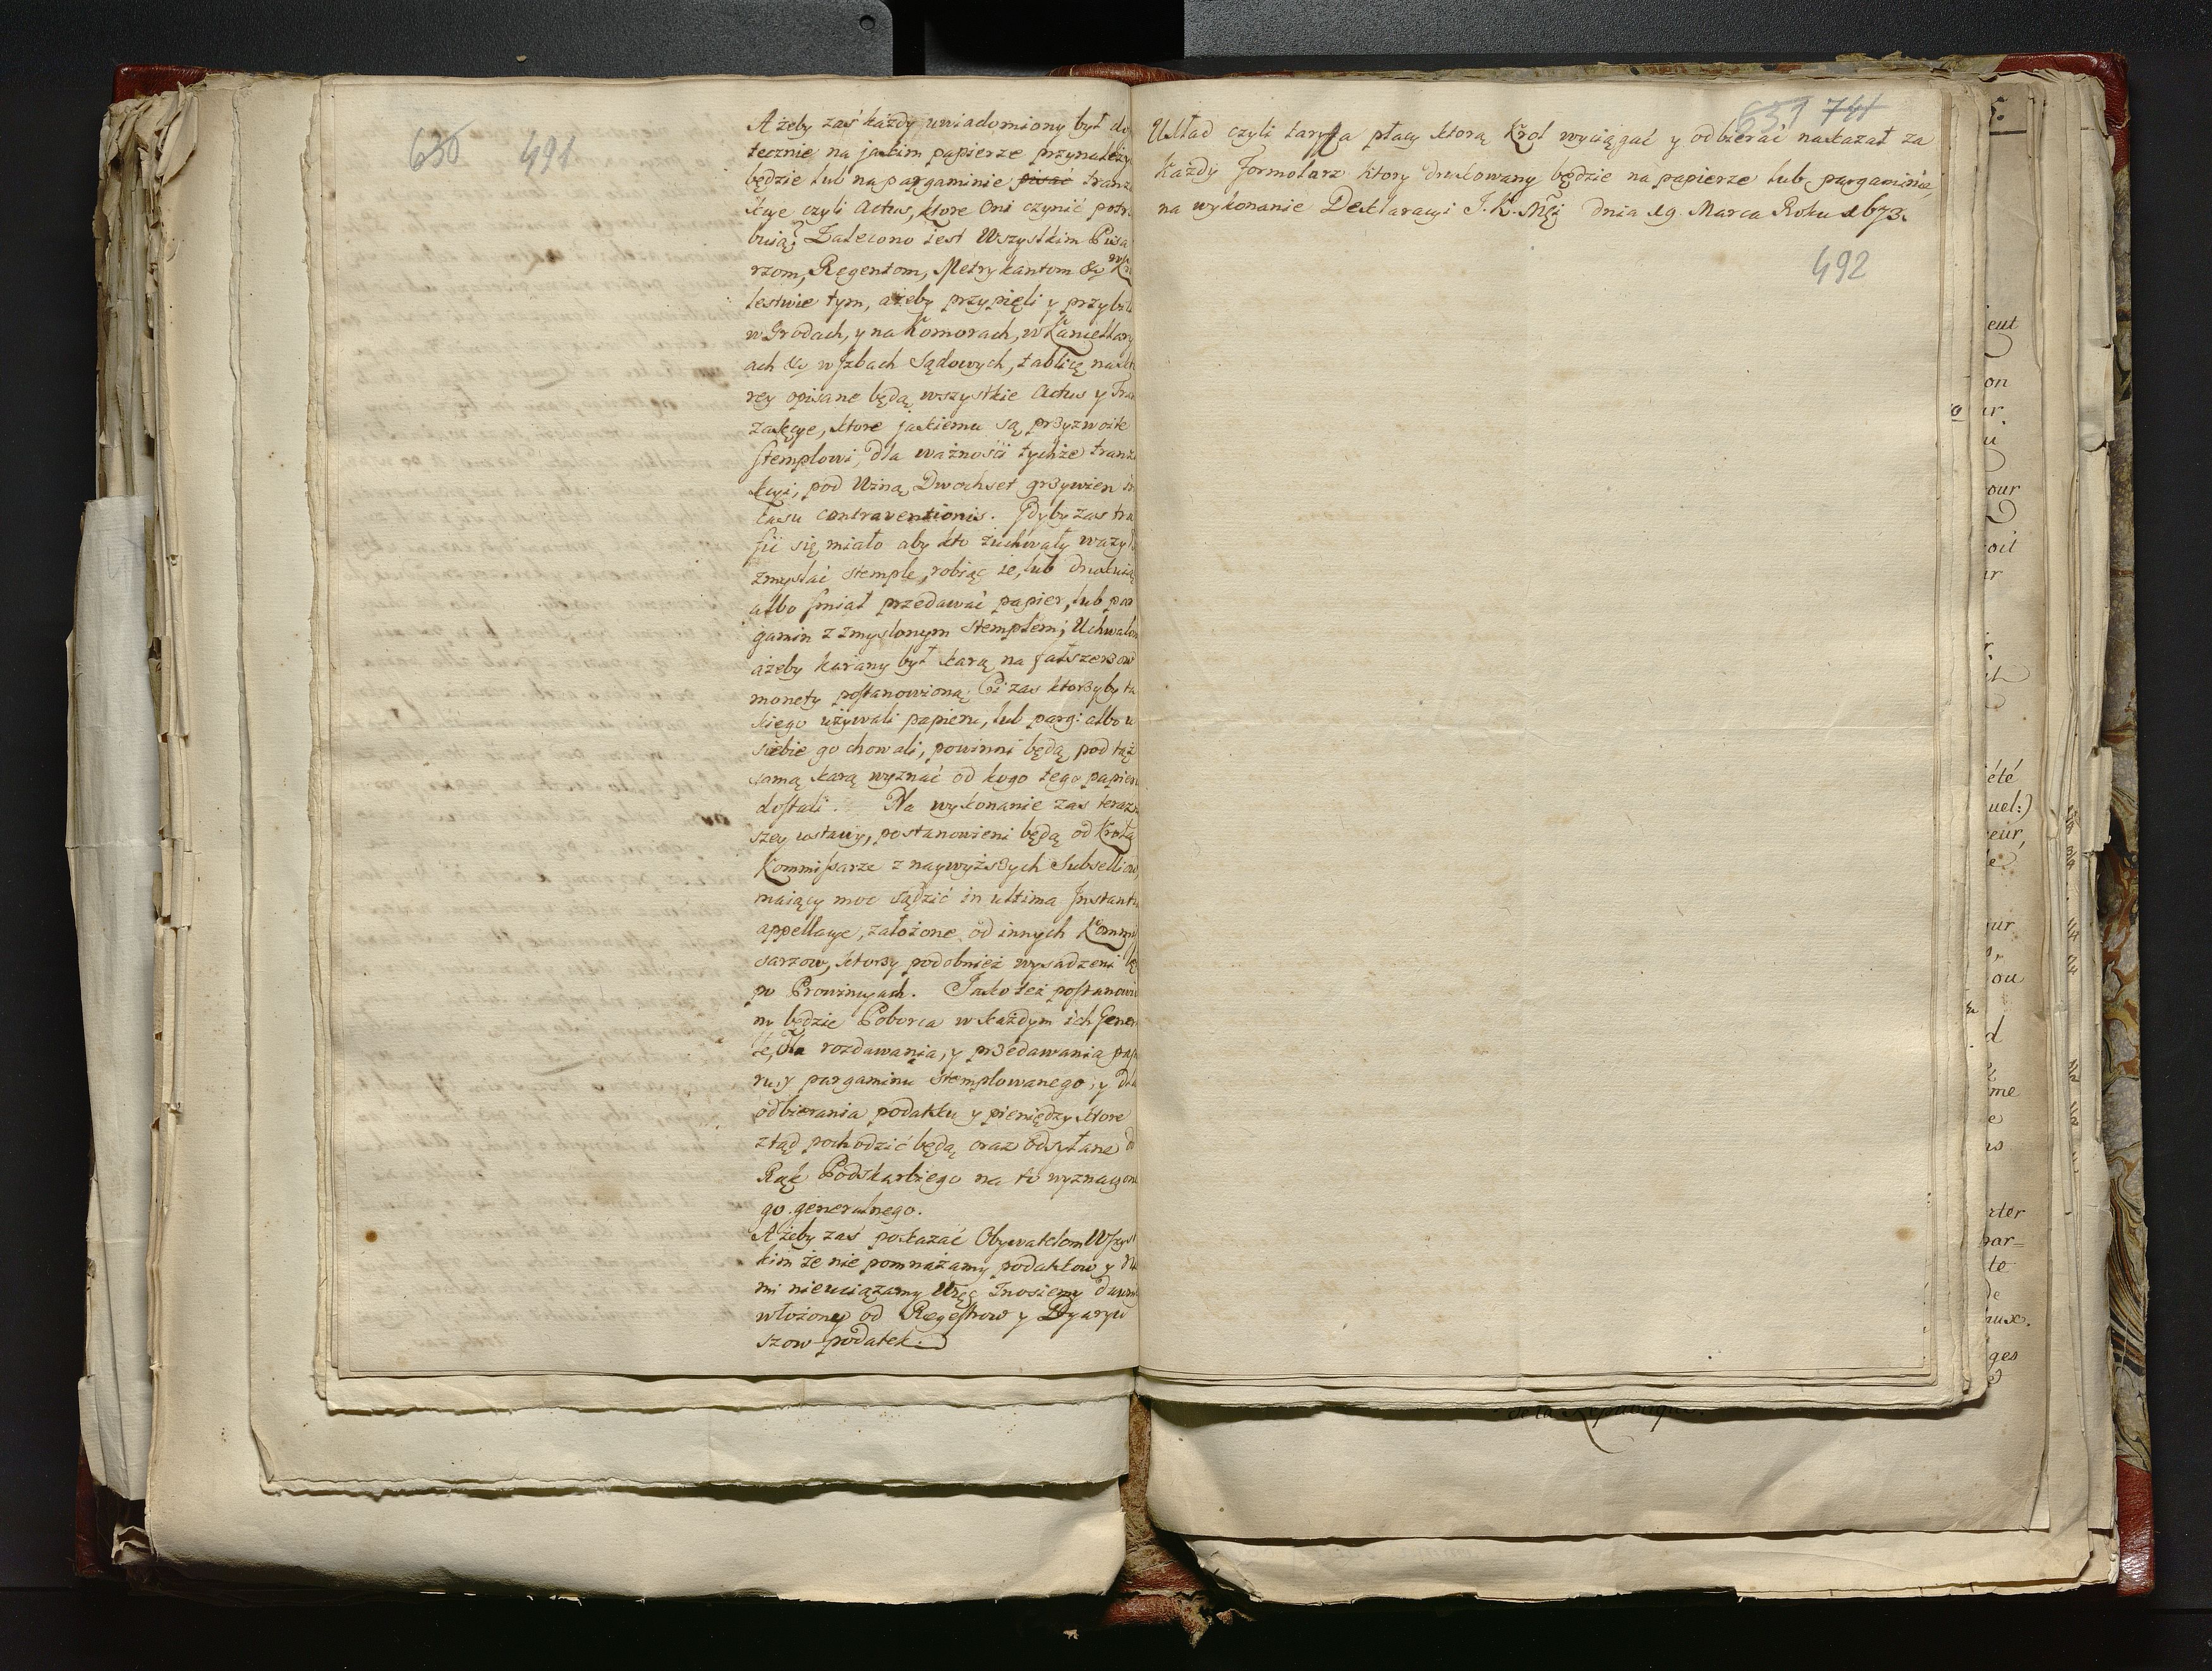 630 491
Ażeby zaś każdy uwiadomiony był do
tecznie na jakim papierze przynależy
będzie lub na pargaminie pisać tranza
kcye czyli Actus, ktore Oni czynić potr
buią? Zalecono iest Wszystkim Pisa
rzom, Regentom, Metrykantom &c w Kro
lestwie tym, ażeby przypięli y przybili
w Grodach, y na Komorach, w Kancellary
ach &c w Izbach Sądowych, tablicę na kto
rey opisane będą wszystkie Actus y Tran
zakcye, ktore jakiemu są przyzwoite
stemplowi, dla ważności tychże tranza
kcyi, pod Winą Dwochset grzywien in
casu contraventionis. Gdyby zas tra
fić się miało aby kto zuchwały ważył
zmyslać stemple, robiąc ie, lub drukuiąc
albo smiał przedawać papier, lub par
gamin z zmyslonym stemplem; Uchwalono
ażeby karany był karą na fałszerzow
monety postanowioną; Ci zas ktorzyby ta
kiego używali papieru, lub parg: albo u
siebie go chowali, powinni będą pod taż
samą karą wyznać od kogo tego papieru
dostali. Na wykonanie zas teraz
szey ustawy, postanowieni będą od Krola
Kommissarze z naywyższych Subselliow,
maiący moc sądzić in ultima Instantia
appellacye, założone od innych Kommis
sarzow, ktorzy podobnież wysadzeni bę
po Prowincyach. Jako też postanowio
ny będzie Poborca w każdym ich Gener
le, dla rozdawania, y przedawania papie
ru, y pargaminu stemplowanego, y dla
odbierania podatku y pieniędzy ktore
ztąd pochodzić będą oraz odsyłane do
Rąk Podskarbiego na to wyznaczone
go generalnego.
Ażeby zaś pokazać Obywatelom Wszyst
kim że nie pomnażamy podatkow y
mi nieuciążamy Więc Znosiemy dawni
włożony od Regestrow y Dyaryu
szow podatek.
631 741
Układ czyli taryffa płacy ktorą Krol wyciągać y odbierać nakazał za
każdy Formolarz ktory drukowany będzie na papierze lub pargaminie,
na wykonanie Deklaracyi J. K. Mći dnia 19. Marca Roku 1673.
492
eut
on
ur
our
oit
ur
été
uel:)
eur,
ur
ou
d
me
e
rter
par-
te
de
aux.
ges